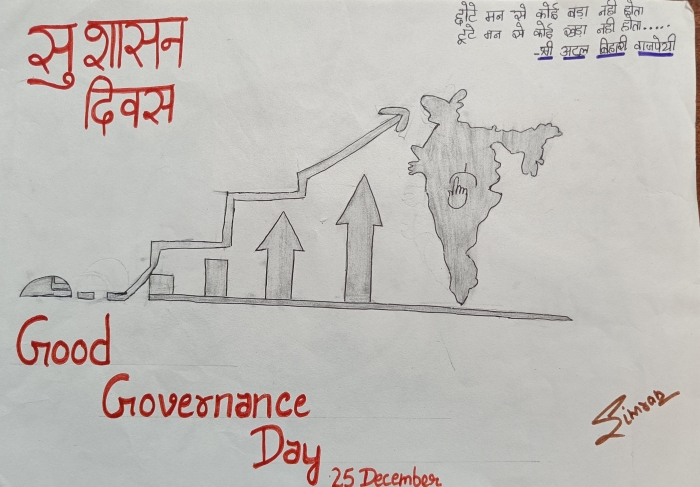 सुशासन
दिवस
छोटे मन से कोई बडा नही होता
टूटे मन से कोई खडा नही होता.....
-श्री अटल बिहारी वाजपेयी
Good
Governance
Day
25 December
Simran